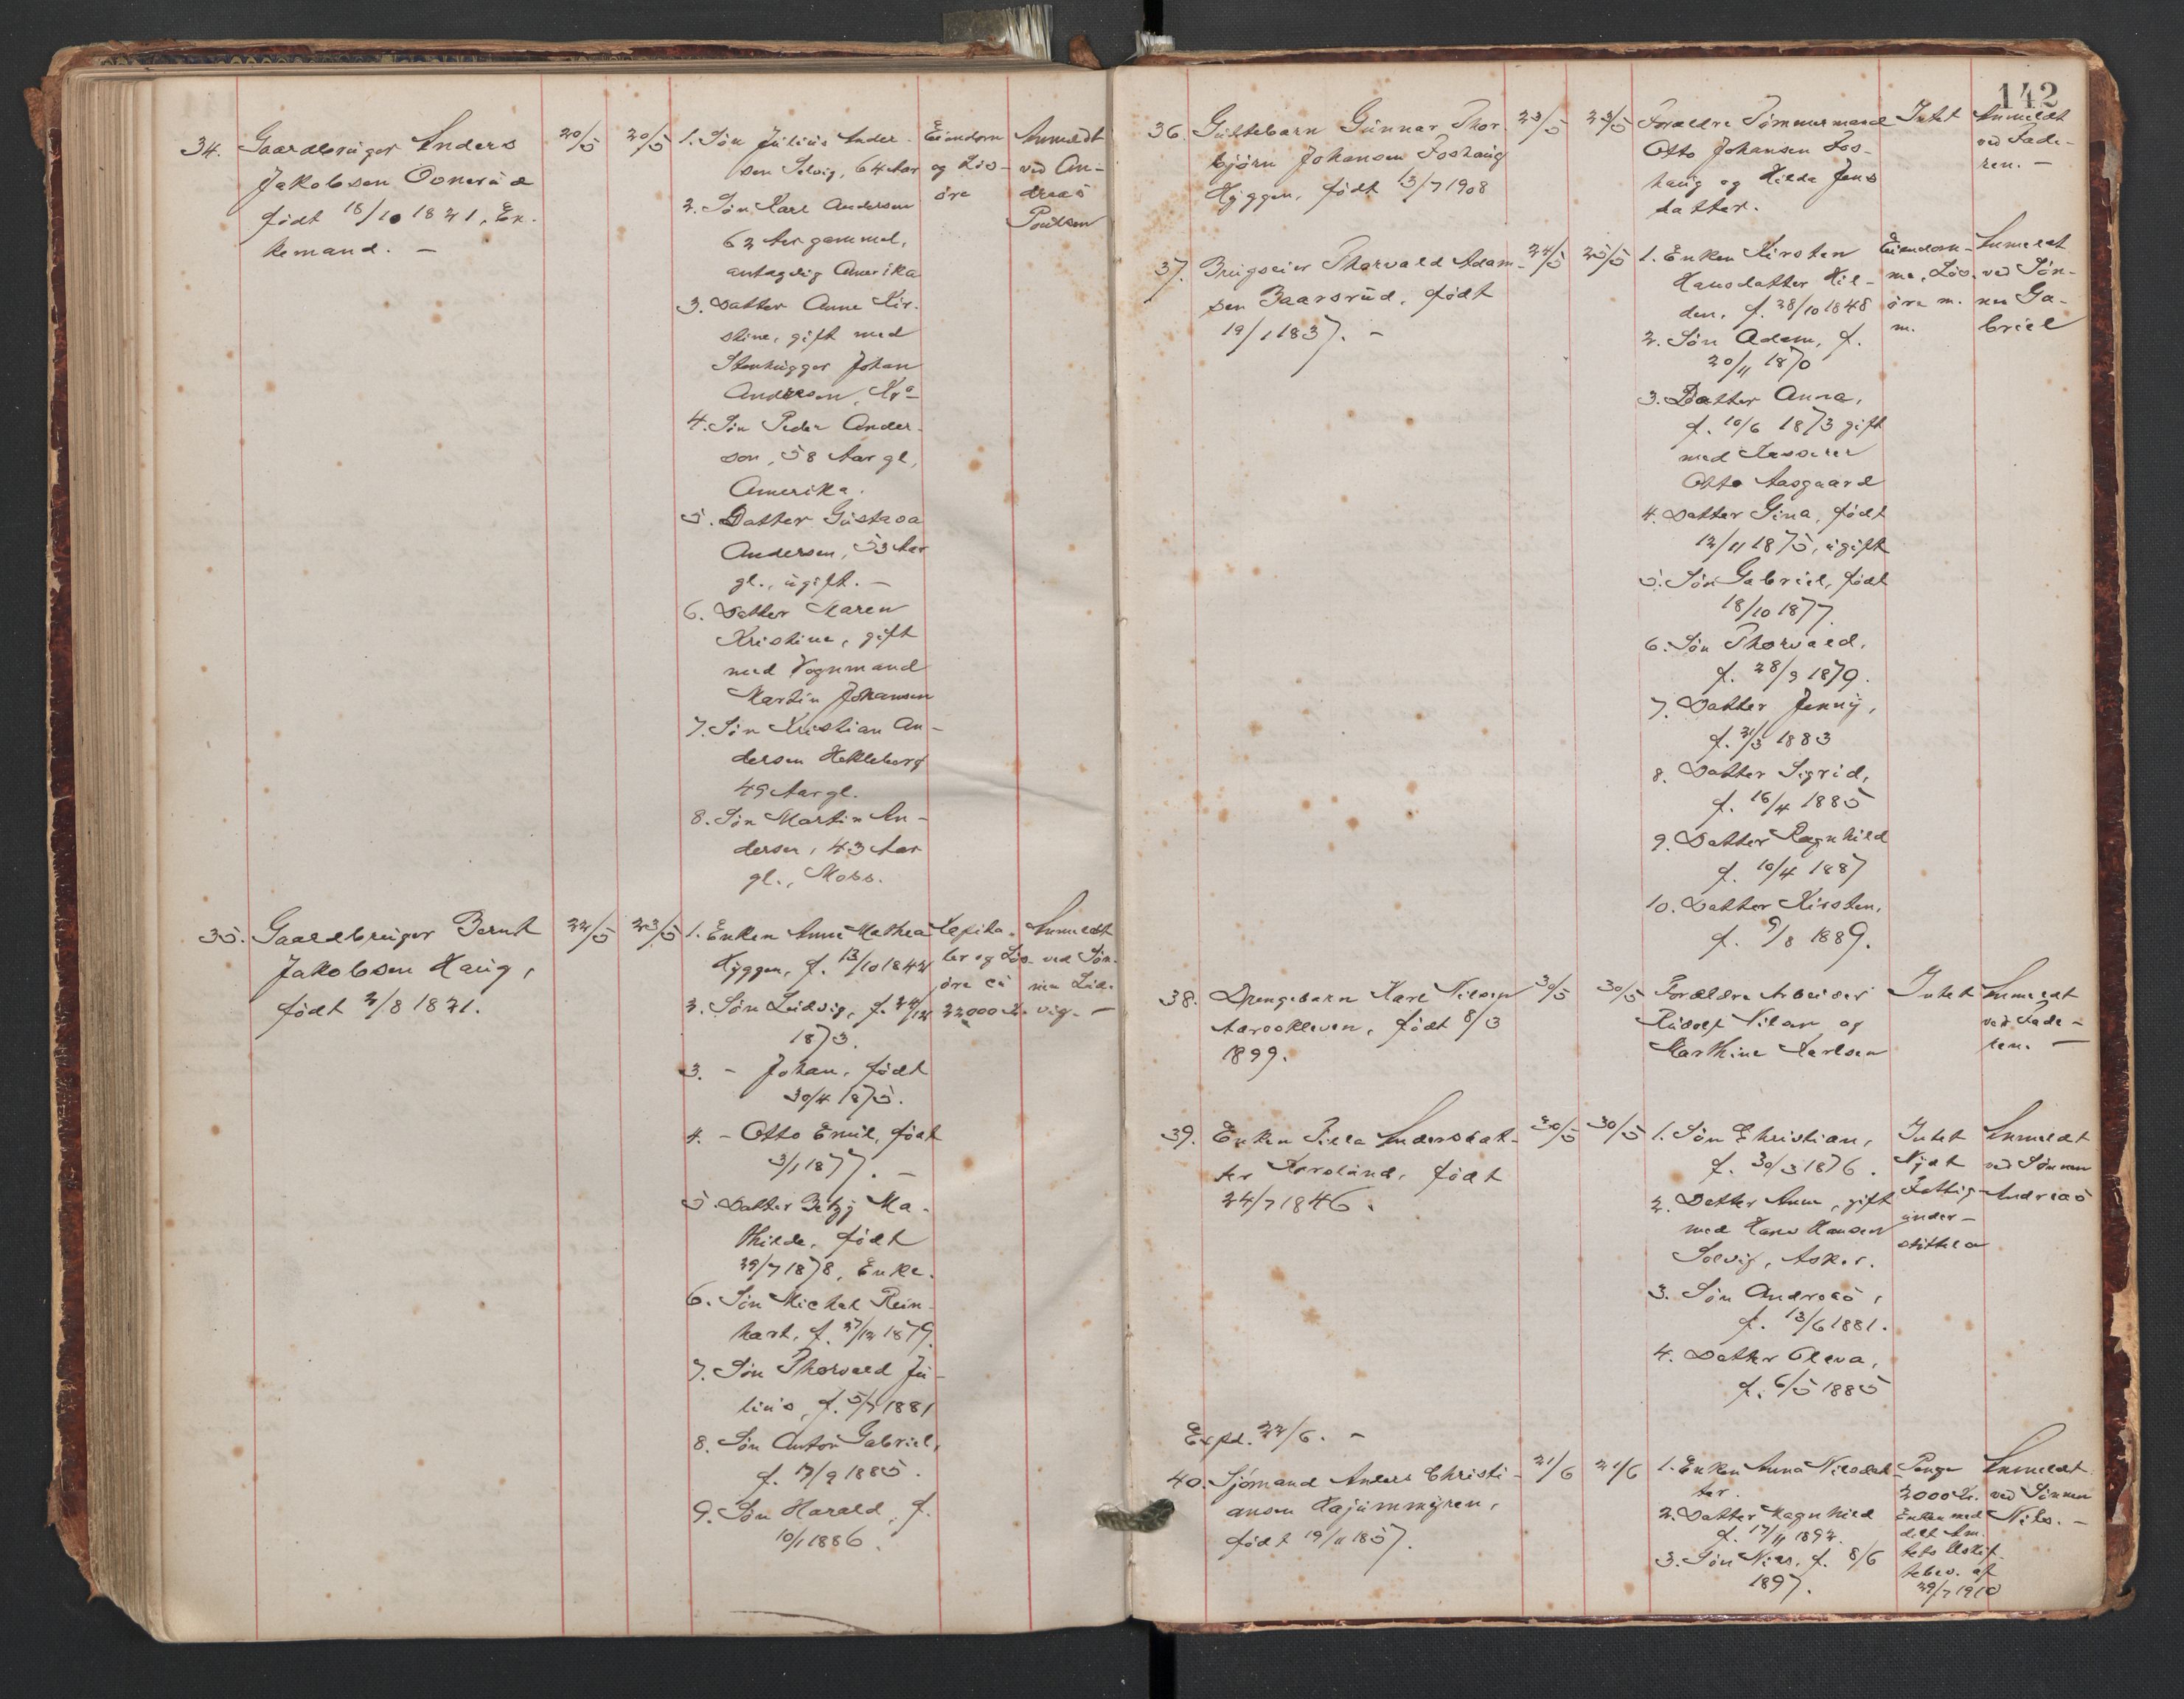 34. Gaardbruger Anders
Jakobsen Ovnerud
født 18/10 1821, En-
kemand. —
20/5
20/5
1. Søn Julius Ander-
sen Selvig, 64 Aar
2. Søn Karl Andersen
62 Aar gammel,
antagelig Amerika
3. Datter Anne Kir-
stine, gift med
Stenhugger Johan
Andersen, Kra
4. Søn Peder Ander-
sen, 58 Aar gl,
Amerika.
5. Datter Gustava
Andersen, 53 Aar
gl., ugift. —
6. Datter Karen
Kristine, gift
med Vognmand
Martin Johansen
7. Søn Kristian An-
dersen Hekleberg
49 Aar gl.
8. Søn Martin An-
dersen, 43 Aar
gl., Moss.
Eiendom
og Løs-
øre
Anmeldt
ved An-
dreas
Poulsen
35. Gaardbruger Bernt
Jakobsen Haug,
født 2/8 1821.
22/5
23/5
1. Enken Anne Mathea
Hyggen, f. 13/10 1842
2. Søn Ludvig, f. 22/12
1873.
3. - Johan, født
30/4 1875.
4. - Otto Emil, født
3/1 1877. —
5. Datter Betzy Ma-
thilde, født
29/7 1878, Enke.
6. Søn Michal Rein-
hart, f. 27/12 1879
7. Søn Thorvald Ju-
lius, f. 5/7 1881
8. Søn Anton Gabriel,
f. 17/9 1885.
9. Søn Harald, f.
10/1 1886.
Kapita-
ler og Løs-
øre ca
22000 Kr.
Anmeldt
ved Søn-
nen Lud-
vig. —
142
36. Guttebarn Gunnar Thor-
bjørn Johansen Foshaug
Hyggen, født 13/7 1908
23/5
23/5
Forældre Tømmermand
Otto Johansen Fos-
haug og Hilda Jens
datter.
Intet
Anmeldt
ved Fade-
ren. —
37. Brugseier Thorvald Adam-
sen Baarsrud, født
19/1 1837. —
24/5
25/5
1. Enken Kirsten
Hansdatter Hil-
den, f. 28/10 1848
2. Søn Adam, f.
20/11 1870
3. Datter Anna,
f. 10/6 1873 gift
med Kasserer
Otto Aasgaard
4. Datter Gina, født
12/11 1875, ugift
5. Søn Gabriel, født
18/10 1877
6. Søn Thorvald,
f. 28/9 1879.
7. Datter Jenny,
f. 21/3 1883
8. Datter Sigrid,
f. 16/4 1885
9. Datter Ragnhild
f. 10/4 1887
10. Datter Kirsten,
f. 9/8 1889.
Eiendom-
me, Løs-
øre m.
m.
Anmeldt
ved Søn-
nen Ga-
briel
38. Drengebarn Karl Nilsen
Aaroskleven, født 8/3
1899.
30/5
30/5
Forældre Arbeider
Rudolf Nilsen og
Marthine Karlsen
Intet
Anmeldt
ved Fade-
ren. —
39. Enken Pilla Andersdat-
ter Kroslund, født
24/7 1846.
30/5
30/5
1. Søn Christian,
f. 30/3 1876.
2. Datter Anne, gift
med Hans Hansen
Solvig, Asker.
3. Søn Andreas,
f. 13/6 1881.
4. Datter Oleva,
f. 6/5 1885
Intet
Nydt
Fattig-
under-
støttelse
Anmeldt
ved Sønnen
Andreas
Expd. 22/6. —
40. Sjømand Anders Christi-
ansen Hajummyren,
født 19/11 1857.
21/6
21/6
1. Enken Anna Nilsdat-
ter.
2. Datter Ragnhild
f. 17/11 1892.
3. Søn Nils, f. 8/6
1897.
Penge
2000 Kr.
Enken med
delt Am-
tets Uskif-
tebev. af
29/7 1910
Anmeldt
ved Sønnen
Nils. —